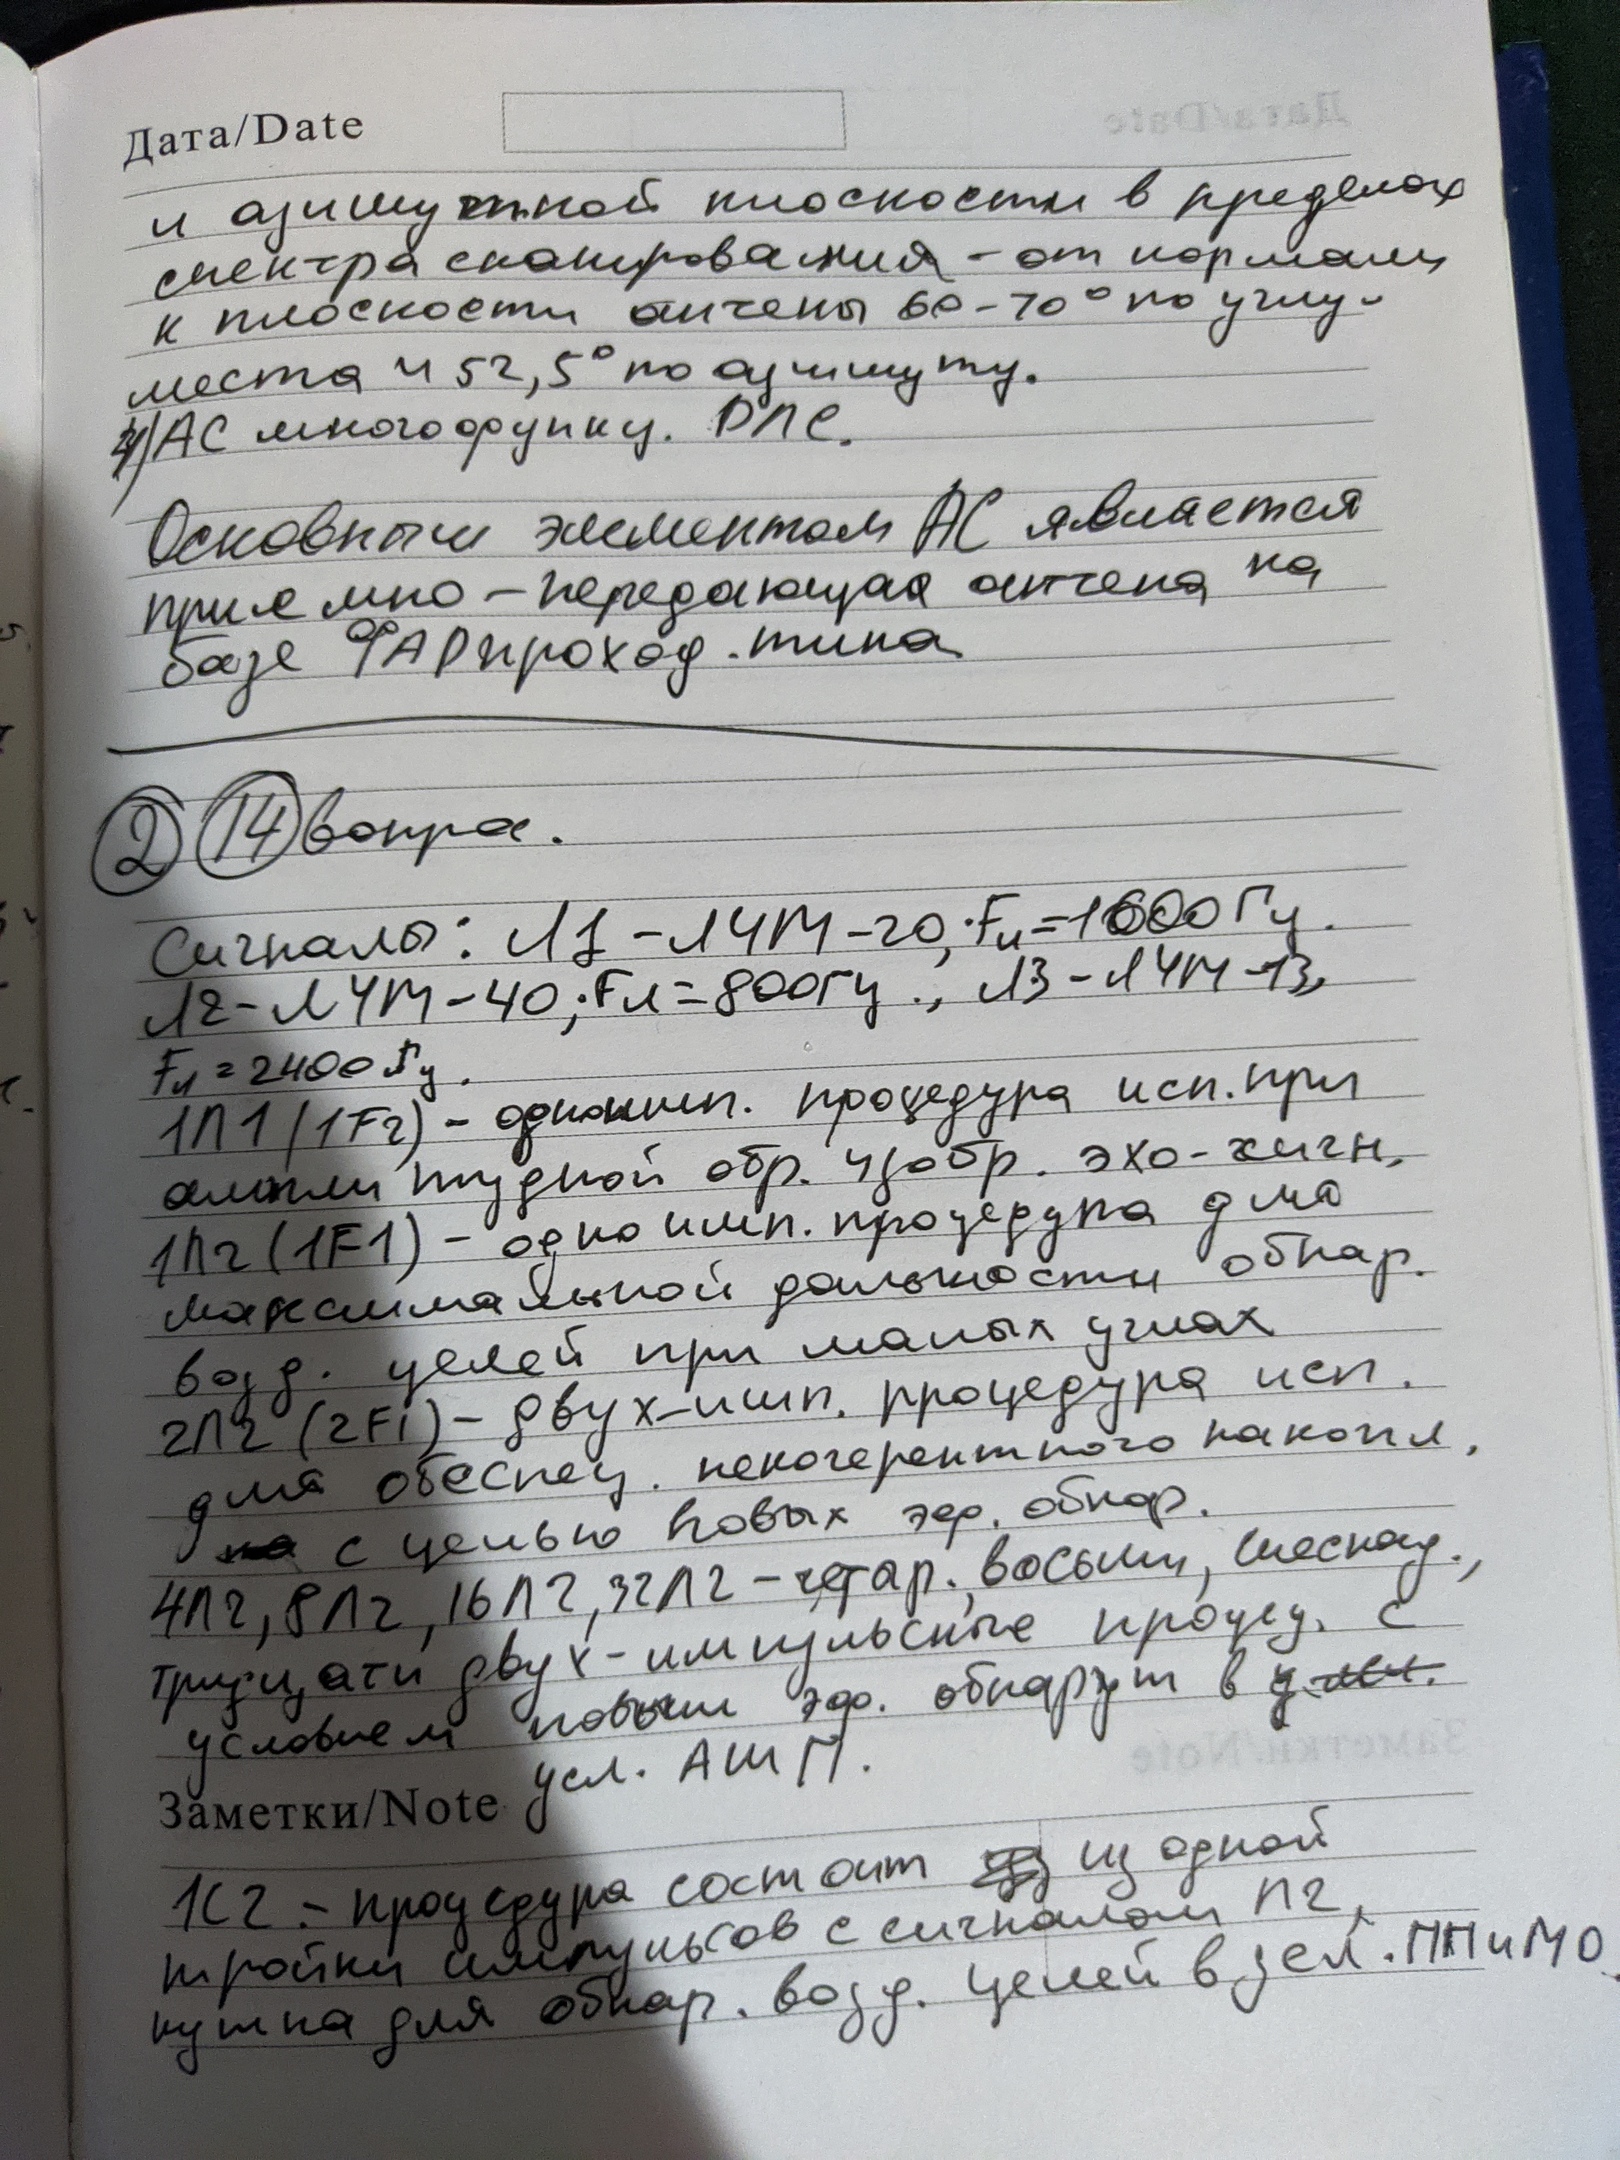 Дата/Date
и азимутной плоскости в пределах
спектра сканирования - от нормали
к плоскости антены 60-70° по углу
места и 52,5° по азимуту.
4) АС многофункц. РЛС.
Основным элементом АС является
приемно-передающая антена на
базе ФАР проход. типа
2 14 вопрос.
Сигналы: Л1 - ЛЧМ-20; Fл=1600Гц.
Л2-ЛЧМ-40; Fл=800Гц., Л3-ЛЧМ-13,
Fл=2400Гц.
1Л1 (1F2) - одноимп. процедура исп. при
амплитудной обр. изобр. эхо-сигн.
1Л2 (1F1) - одноимп. процедура для
максимальной дальности обнар.
возд. целей при малых углах
2Л2 (2F1) - двух-имп. процедура исп.
для обеспеч. некогерентного накопл.
с целью повых эф. обнар.
4Л2, 8Л2, 16Л2, 32Л2 - четар., восьми, шеснад.,
тридцати двух-импульсные процед. с
условием повым эф. обнаруж в
усл. АШП.
Заметки/Note
1С2 - процедура состоит из одной
тройки импульсов с сигналом Л2,
нужна для обнар. возд. целей в ПП и МО.